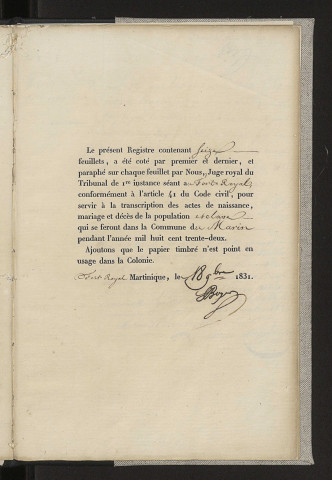 Le présent Registre contenant seize
feuillets, a été coté par premier et dernier, et
paraphé sur chaque feuillet par Nous, Juge royal du
Tribunal de 1re instance séant au Fort-Royal,
conformément à l'article 41 du Code civil, pour
servir à la transcription des actes de naissance,
mariage et décès de la population esclave
qui se feront dans la Commune du Marin
pendant l'année mil huit cent trente-deux.
Ajoutons que le papier timbré n'est point en
usage dans la Colonie.
Fort Royal Martinique, le 18 9bre 1831.